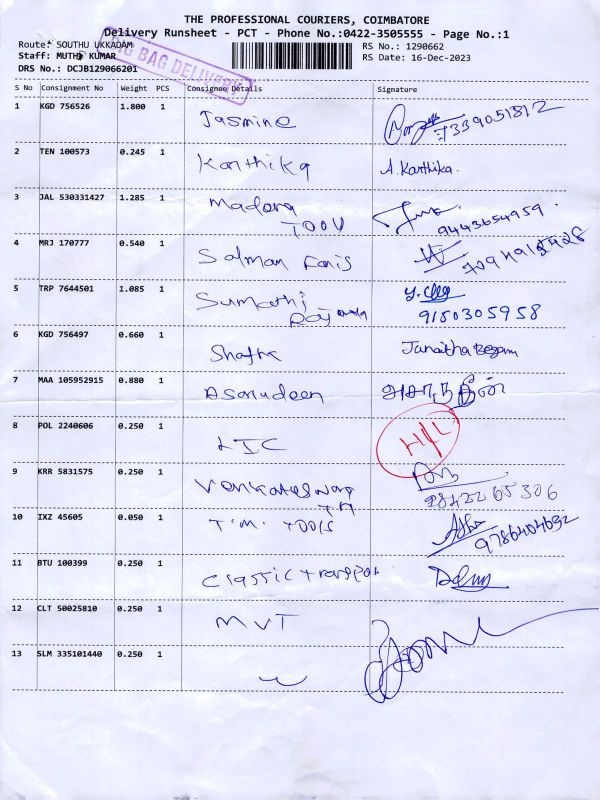 THE PROFESSIONAL COURIERS, COIMBATORE
Delivery Runsheet - PCT - Phone No.:0422-3505555 - Page No.:1
Route: SOUTHU UKKADAM RS No.: 1290662
Staff: MUTHU KUMAR RS Date: 16-Dec-2023
DRS No.: DCJB129066201
BIG BAG DELIVERY
S No Consignment No Weight PCS Consignee Details Signature
1 KGD 756526 1.800 1 Jasmine 7339051812
2 TEN 100573 0.245 1 Karthika A.Karthika.
3 JAL 530331427 1.285 1 Madora
TOOU 9443654959.
4 MRJ 170777 0.540 1 Salman Faris
5 TRP 7644501 1.085 1 Sumathi
9150305958
6 KGD 756497 0.660 1 Janatha Begam
7 MAA 105952915 0.880 1 Asarudeen அசாருதீன்
8 POL 2240606 0.250 1 LIC
9 KRR 5831575 0.250 1 Venkateswara
9842265306
10 IXZ 45605 0.050 1 T.M. TOOLS 9786404632
11 BTU 100399 0.250 1 Classic Transport
12 CLT 50025810 0.250 1 MVT
13 SLM 335101440 0.250 1